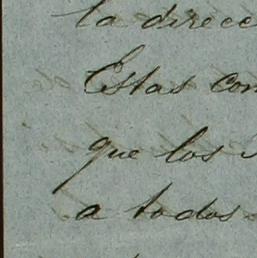 la direcc
Estas con
que los
a todos